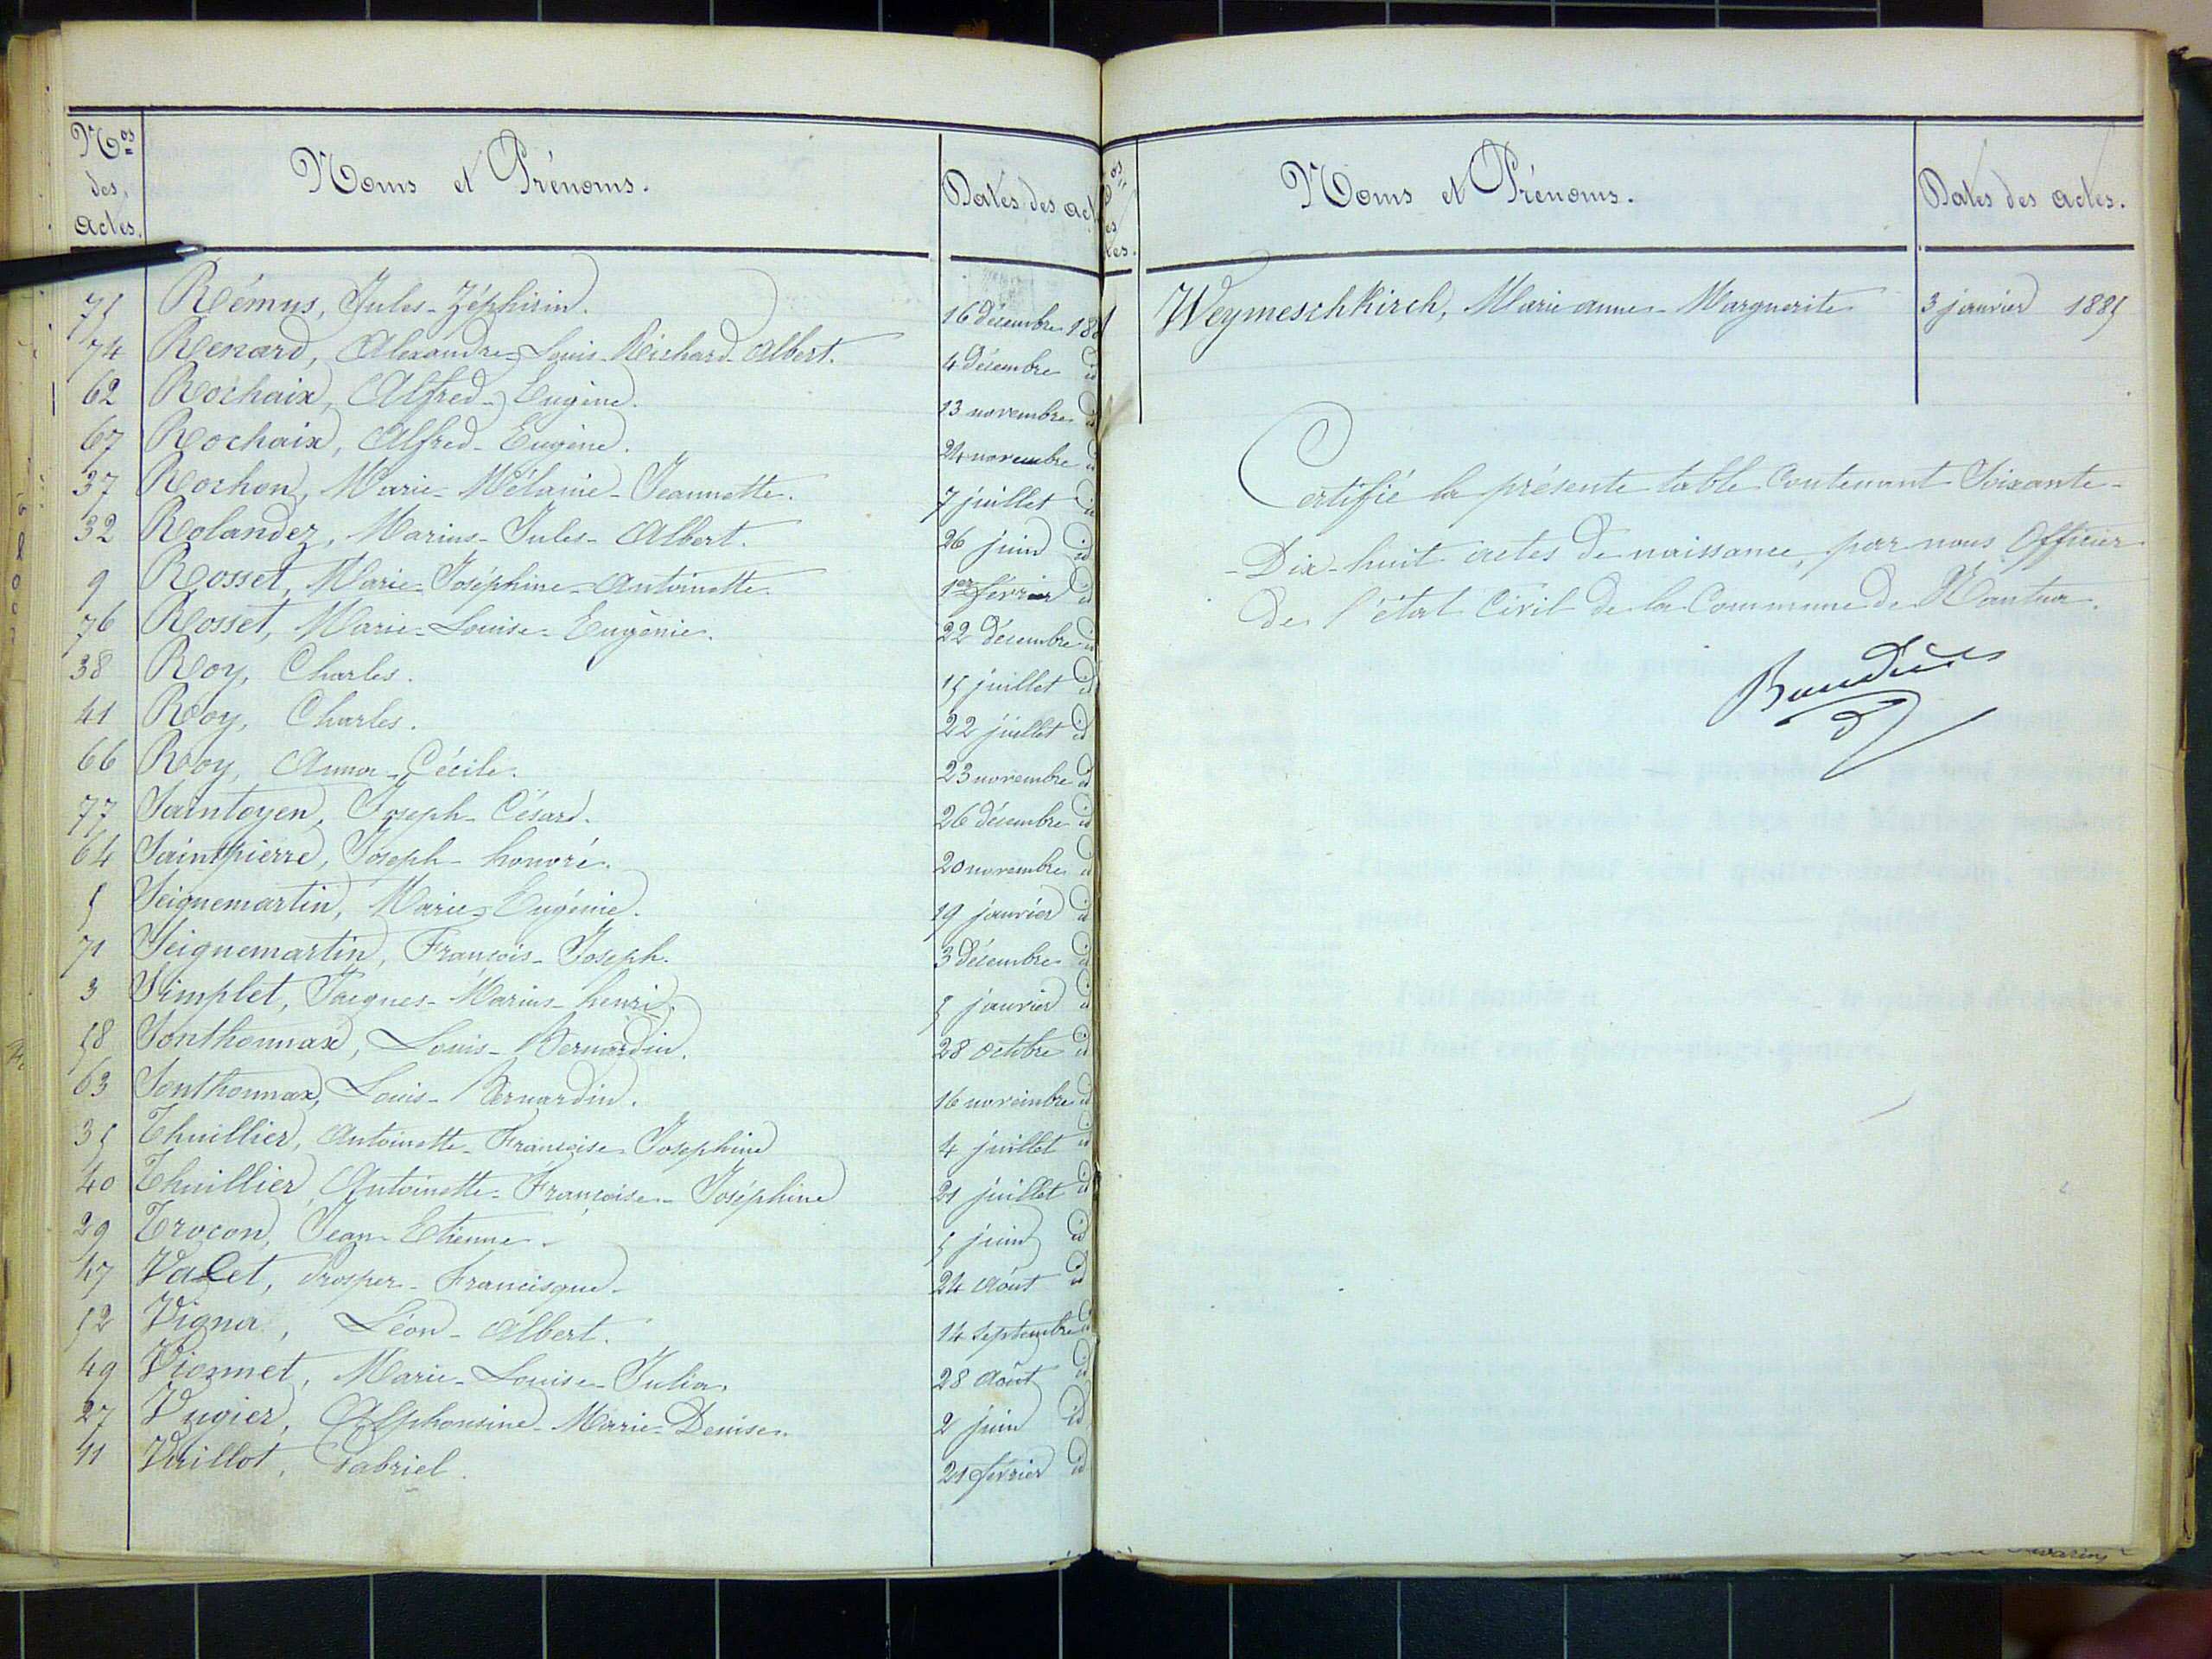 Nos des actes.
Noms et Prénoms.
Dates des act
75 Rémus, Jules-Zéphirin. 16 décembre 188
74 Renard, Alexandre-Louis-Richard-Albert. 4 décembre id
62 Rochaix, Alfred-Eugène. 13 novembre id
67 Rochaix, Alfred-Eugène. 24 novembre id
37 Rochon, Marie-Mélanie-Jeannette. 7 juillet id
32 Rolandez, Marius-Jules-Albert. 26 juin id
9 Rosset, Marie-Joséphine-Antoinette. 1er février id
76 Rosset, Marie-Louise-Eugénie. 22 décembre id
38 Roy, Charles. 15 juillet id
41 Roy, Charles. 22 juillet id
66 Roy, Anna-Cécile. 23 novembre id
77 Saintoyen, Joseph-César. 26 décembre id
64 Saintpierre, Joseph-honoré. 20 novembre id
5 Seignemartin, Marie-Eugénie. 19 janvier id
71 Seignemartin, François-Joseph. 3 décembre id
3 Simplet, Jacques-Marius-henri. 5 janvier id
58 Sonthonnax, Louis-Bernardin. 28 octobre id
63 Sonthonnax, Louis-Bernardin. 16 novembre id
35 Thuillier, Antoinette-Françoise-Joséphine 4 juillet id
40 Thuillier, Antoinette-Françoise-Joséphine 21 juillet id
29 Trocon, Jean-Etienne. 5 juin id
47 Valet, Prosper-Francisque. 24 août id
52 Vigna, Léon-Albert. 14 septembre id
49 Vionnet, Marie-Louise-Julia. 28 août id
27 Vugier, Alphonsine-Marie-Denise. 2 juin id
11 Vuillot, Gabriel. 21 février id
Noms et Prénoms.
Dates des actes.
Weymeschkirch, Marie anne-Marguerite 3 janvier 1885
Certifié la présente table contenant Soixante-
-Dix-huit actes de naissance, par nous Officier
de l'état Civil de la Commune de Nantua.